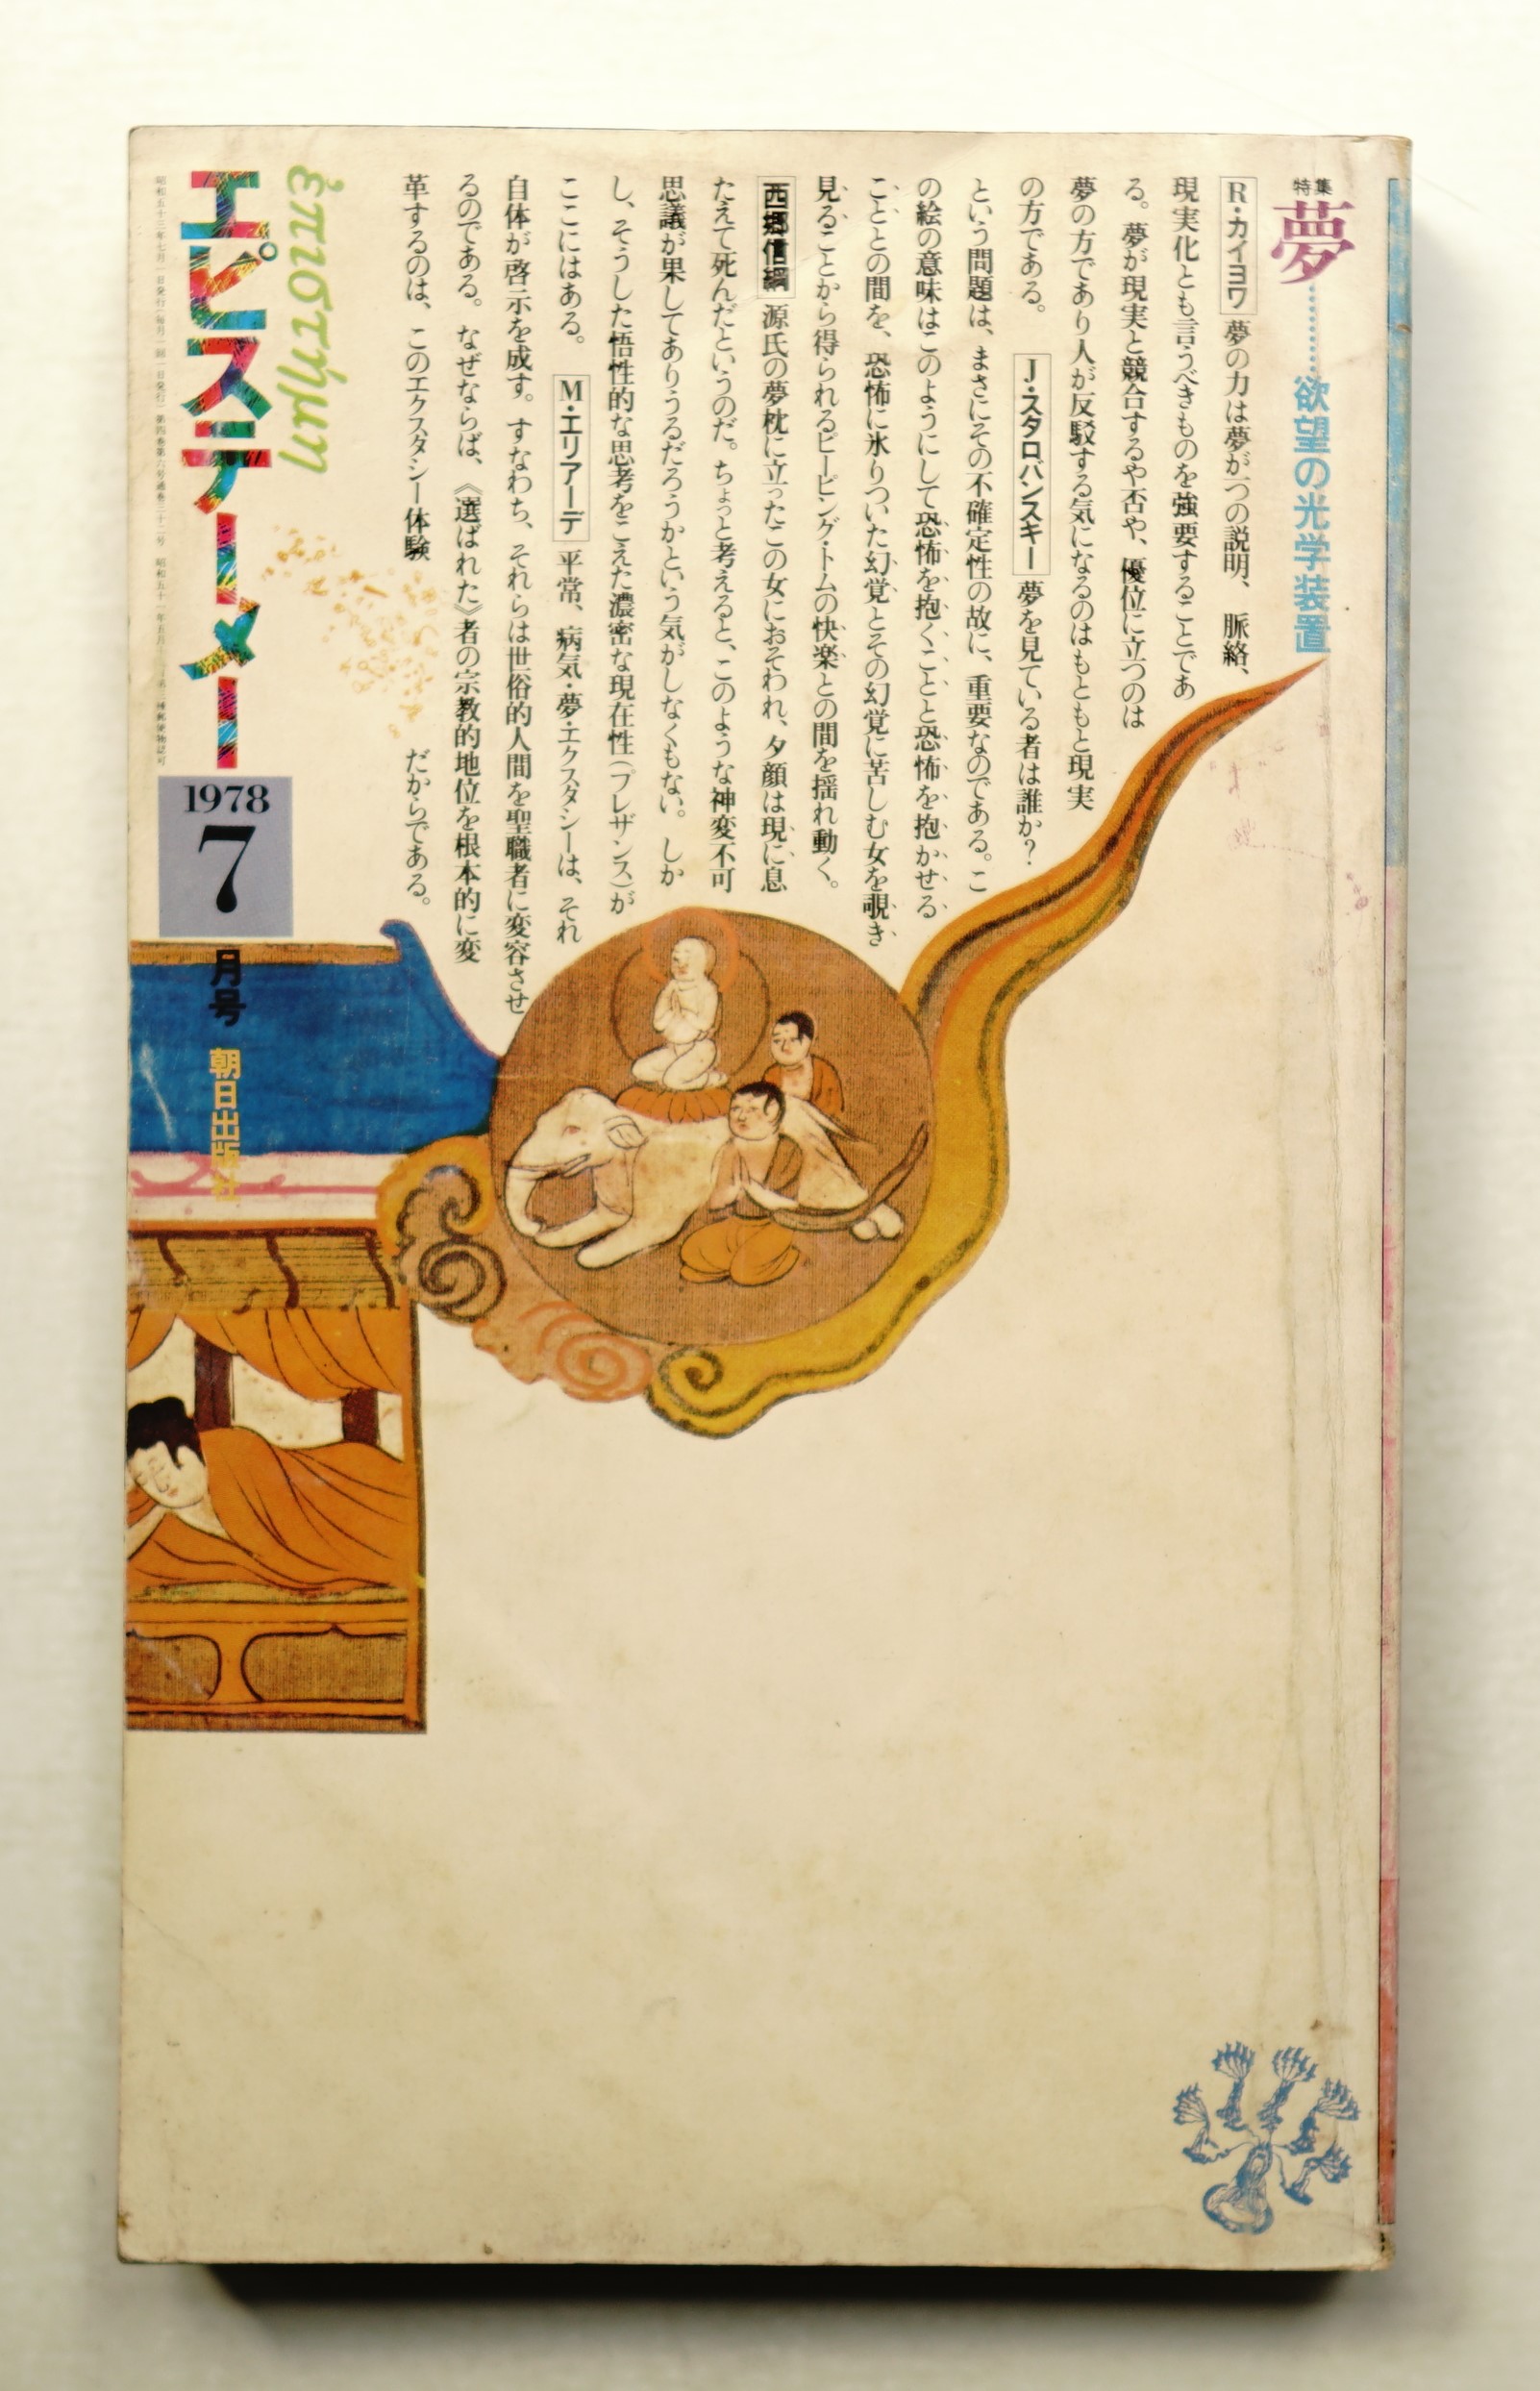 特集
夢…………欲望の光学装置
R・カイヨワ 夢の力は夢が一つの説明、脈絡、
現実化とも言うべきものを強要することであ
る。夢が現実と競合するや否や、優位に立つのは
夢の方であり人が反駁する気になるのはもともと現実
の方である。 J・スタロバンスキー 夢を見ている者は誰か?
という問題は、まさにその不確定性の故に、重要なのである。こ
の絵の意味はこのようにして恐怖を抱くことと恐怖を抱かせる
こととの間を、恐怖に氷りついた幻覚とその幻覚に苦しむ女を覗き
見ることから得られるピーピング・トムの快楽との間を揺れ動く。
西郷信綱 源氏の夢枕に立ったこの女におそわれ、夕顔は現に息
たえて死んだというのだ。ちょっと考えると、このような神変不可
思議が果してありうるだろうかという気がしなくもない。しか
し、そうした悟性的な思考をこえた濃密な現在性(プレザンス)が
ここにはある。 M・エリアーデ 平常、病気・夢・エクスタシーは、それ
自体が啓示を成す。すなわち、それらは世俗的人間を聖職者に変容させ
るのである。なぜならば、《選ばれた》者の宗教的地位を根本的に変
革するのは、このエクスタシー体験
だからである。
ἐπιστημη
エピステーメー
1978
7
月号
朝日出版社